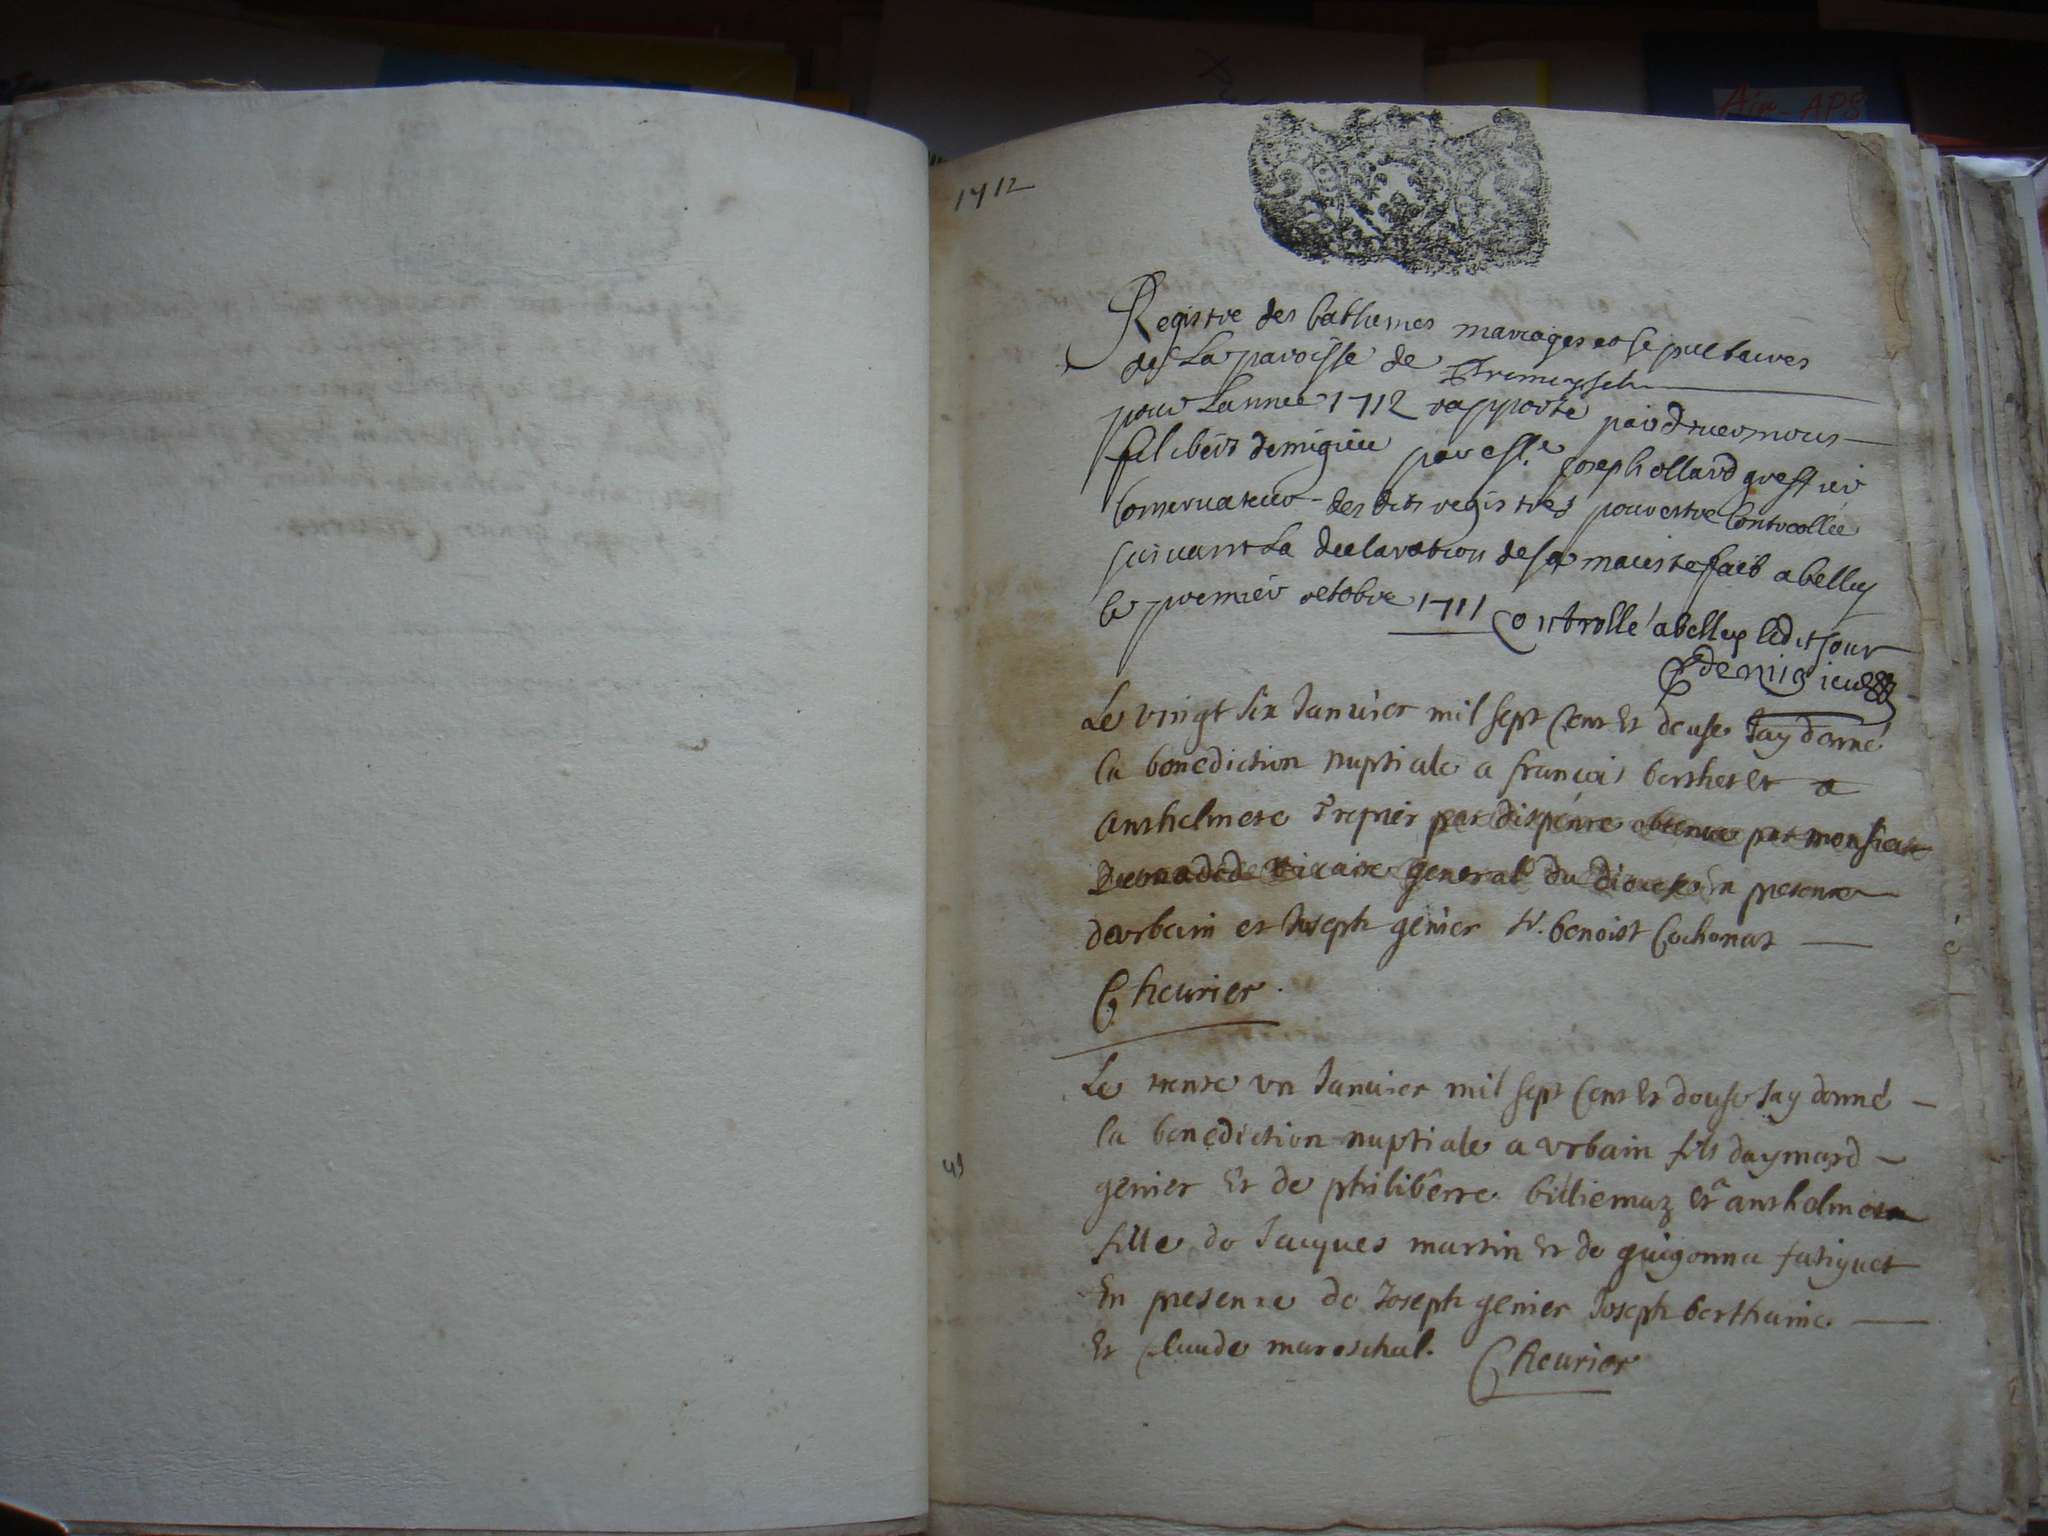 Air APS
1712
Registre des bathemes mariages et sepultures
des La paroisse de
pour Lannee 1712 rapporte par devers nous
filibert demigieu par Mre Joseph ollard greffier
Conservateur des dits registres pour estre Controollée
suivant La declaration de sa maieste fait a belley
le premier octobre 1711 Controllé a belley ledit Jour
demigieu
Le vingt six Januier mil sept Cent Et douse Jay donné
la benediction nuptiale a francois berthet Et a
Anthelmete par dispense obtenue par monsieur
vicaire general du diocese En presence
d'urbain et Joseph genier benoist Cochonat
Cheurier
Le trente vn Januier mil sept Cent Et douse Jay donné
la benediction nuptiale a vrbain fils daymard
genier Et de philiberte billiemaz Et a anthelmete
fille de Jacques martin Et de guigonna fatiguet
En presence de Joseph genier Joseph berthaine
Et claude mareschal. Cheurier
49